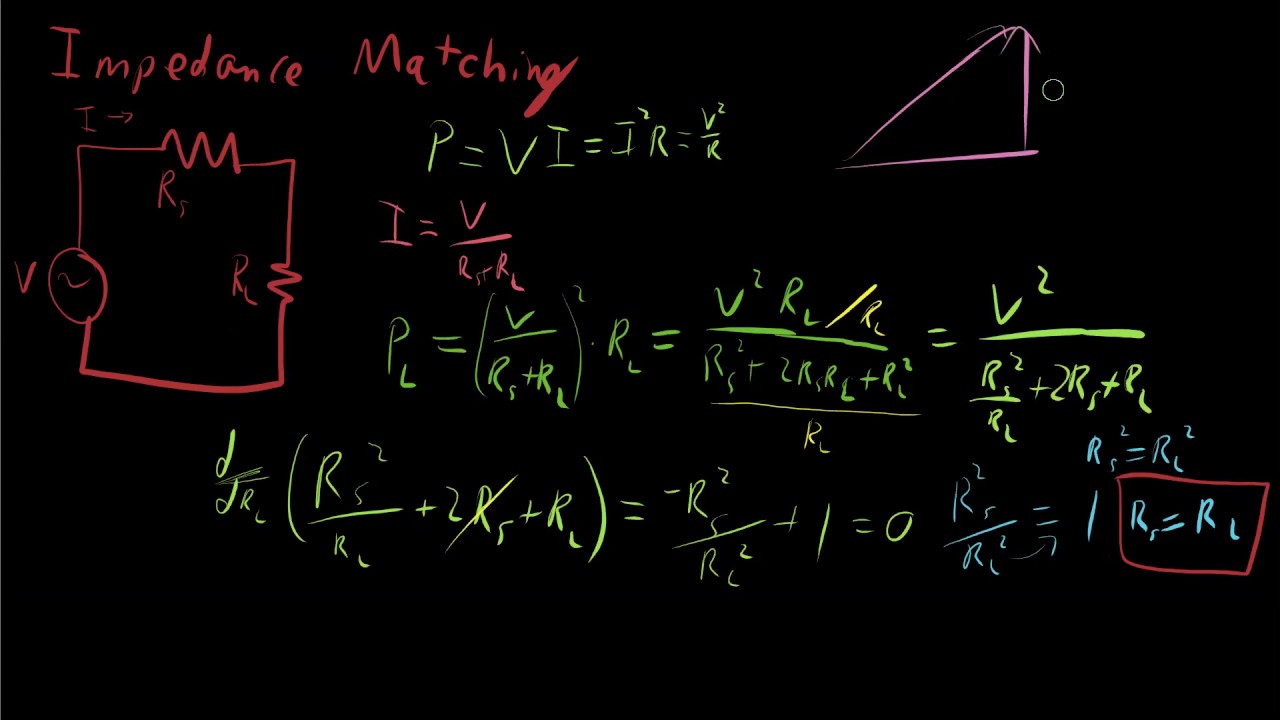 Impedance Matching
I →
R_s
V ~
R_L
P = VI = I²R = V²/R
I = V/(R_s+R_L)
P_L = (V/(R_s+R_L))² · R_L = (V² R_L /R_L)/((R_s²+2R_sR_L+R_L²)/R_L) = V²/(R_s²/R_L+2R_s+R_L)
d/dR_L (R_s²/R_L + 2R_s + R_L) = -R_s²/R_L² + 1 = 0
R_s²/R_L² = 1
R_s² = R_L²
R_s = R_L